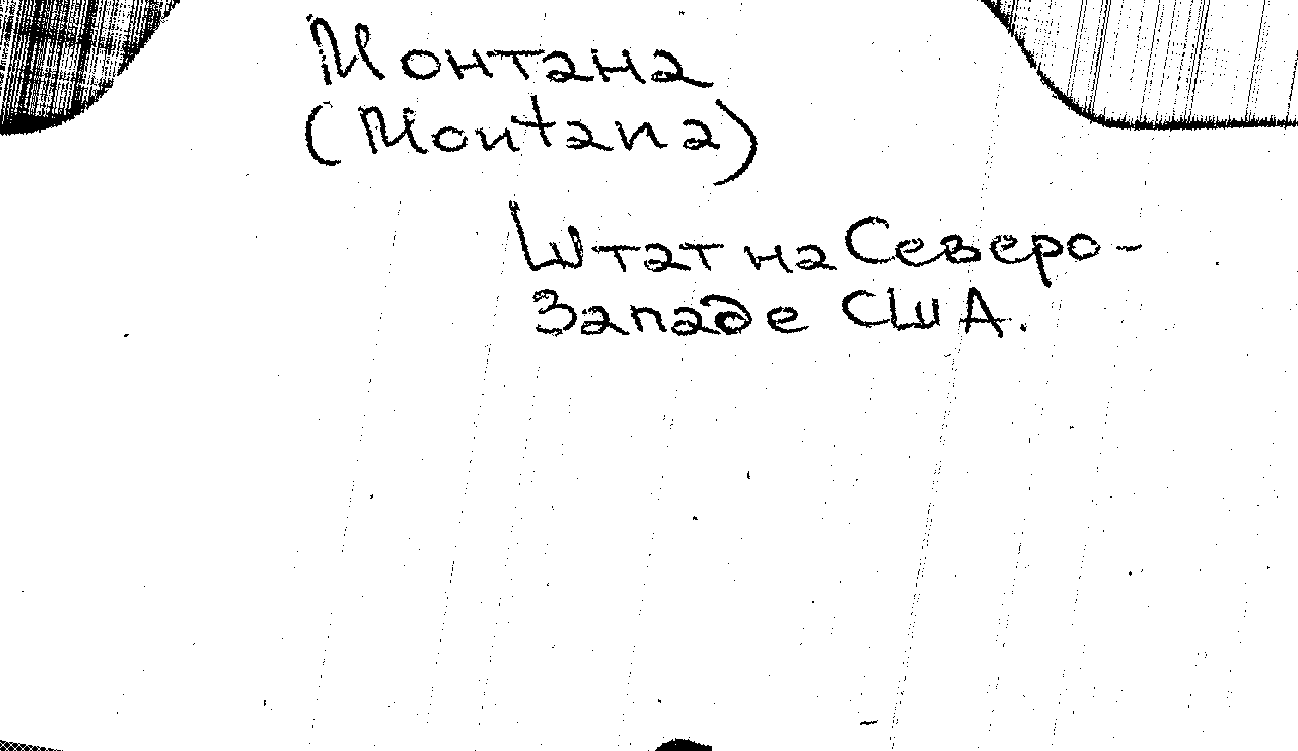 Монтана
(Montana)
Штат на Северо-
Западе США.